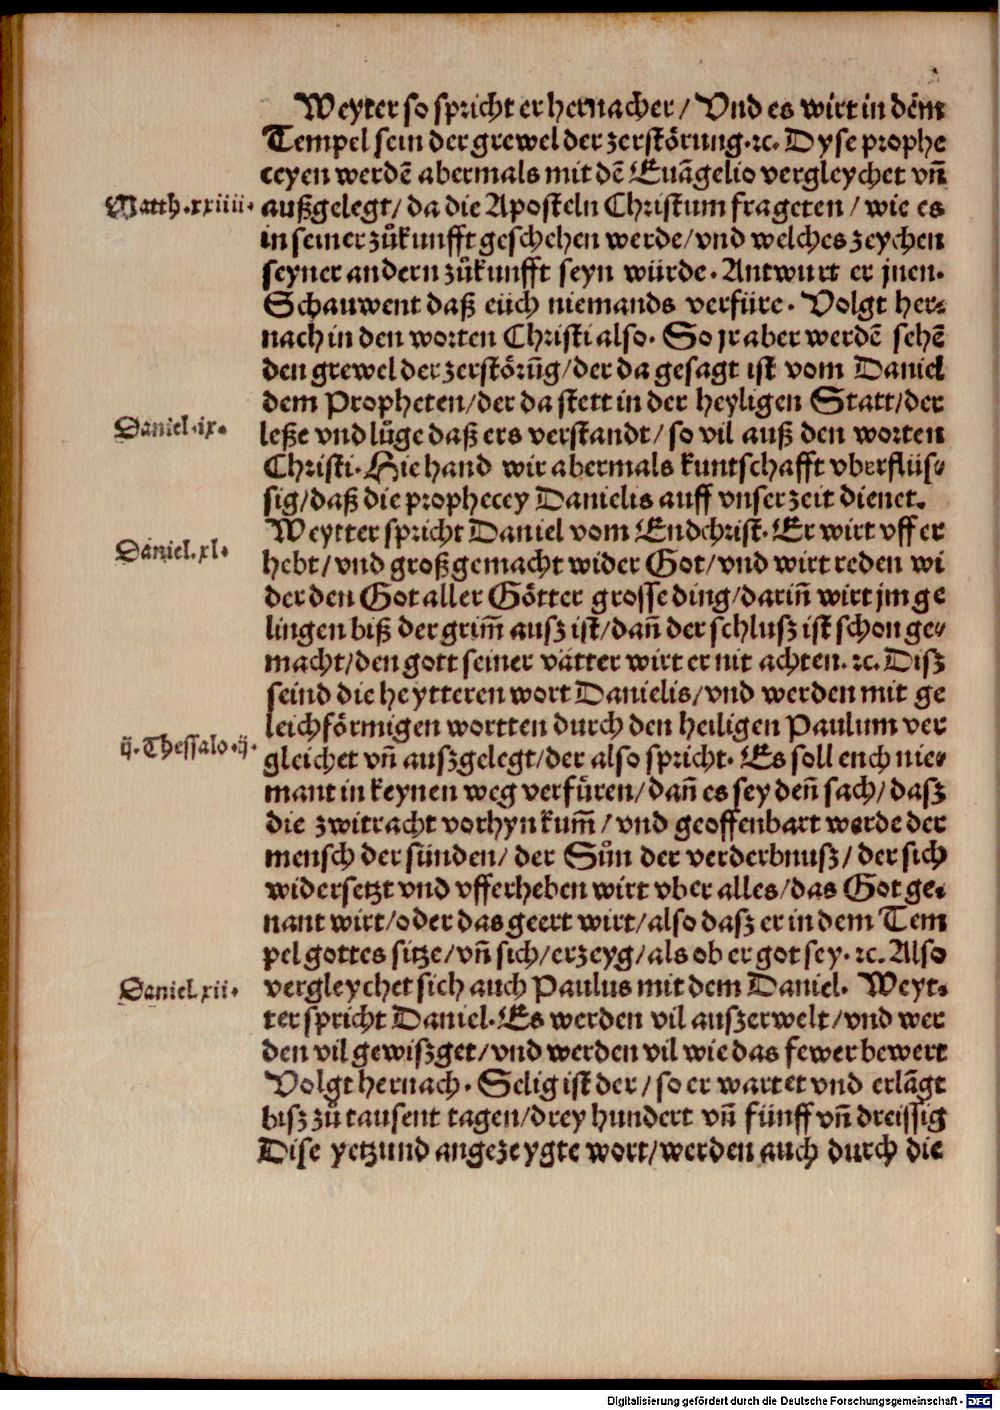 Weyter so spricht er hernacher / Vnd es wirt in dem
Tempel sein der grewel der zerstörung. ꝛc. Dyse prophe
ceyen werdẽ abermals mit dẽ Euãgelio vergleychet vñ
Matth. xxiiii.
außgelegt / da die Aposteln Christum frageten / wie es
in seiner zůkunfft geschehen werde / vnd welches zeychen
seyner andern zůkunfft seyn würde. Antwurt er jnen.
Schauwent daß eüch niemands verfüre. Volgt her⸗
nach in den worten Christi also. So jr aber werdẽ sehẽ
den grewel der zerstörũg / der da gesagt ist vom Daniel
dem Propheten / der da stett in der heyligen Statt / der
Daniel. ix.
leße vnd lůge daß ers verstandt / so vil auß den worten
Christi. Hie hand wir abermals kuntschafft vberflüs⸗
sig / daß die prophecey Danielis auff vnser zeit dienet.
Weytter spricht Daniel vom Endchrist. Er wirt vff er
Daniel. xl.
hebt / vnd groß gemacht wider Got / vnd wirt reden wi
der den Got aller Götter grosse ding / dariñ wirt jm ge
lingen biß der grim̃ ausz ist / dañ der schlusz ist schon ge⸗
macht / den gott seiner vätter wirt er nit achten. ꝛc. Disz
seind die heytteren wort Danielis / vnd werden mit ge
leichförmigen wortten durch den heiligen Paulum ver
ij. Thessalo. ij.
gleichet vñ auszgelegt / der also spricht. Es soll euch nie⸗
mant in keynen weg verfüren / dañ es sey deñ sach / dasz
die zwitracht vorhyn kum̃ / vnd geoffenbart werde der
mensch der sünden / der Sůn der verderbnusz / der sich
widersetzt vnd vfferheben wirt vber alles / das Got ge⸗
nant wirt / oder das geert wirt / also dasz er in dem Tem
pel gottes sitze / vñ sich / erzeyg / als ob er got sey. ꝛc. Also
Daniel. xii.
vergleychet sich auch Paulus mit dem Daniel. Weyt⸗
ter spricht Daniel. Es werden vil auszerwelt / vnd wer
den vil gewiszget / vnd werden vil wie das fewer bewert
Volgt hernach. Selig ist der / so er wartet vnd erlãgt
bisz zů tausent tagen / drey hundert vñ fünff vñ dreissig
Dise yetzund angezeygte wort / werden auch durch die
Digitalisierung gefördert durch die Deutsche Forschungsgemeinschaft - DFG